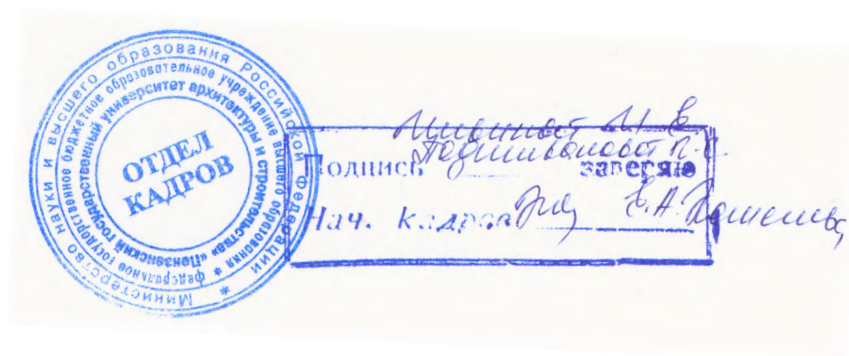 Министерство науки и высшего образования Российской Федерации *
федеральное государственное бюджетное образовательное учреждение высшего образования *
«Пензенский государственный университет архитектуры и строительства»
ОТДЕЛ
КАДРОВ
И. Е.
Подпись заверяю
Нач. кадров Е.А.